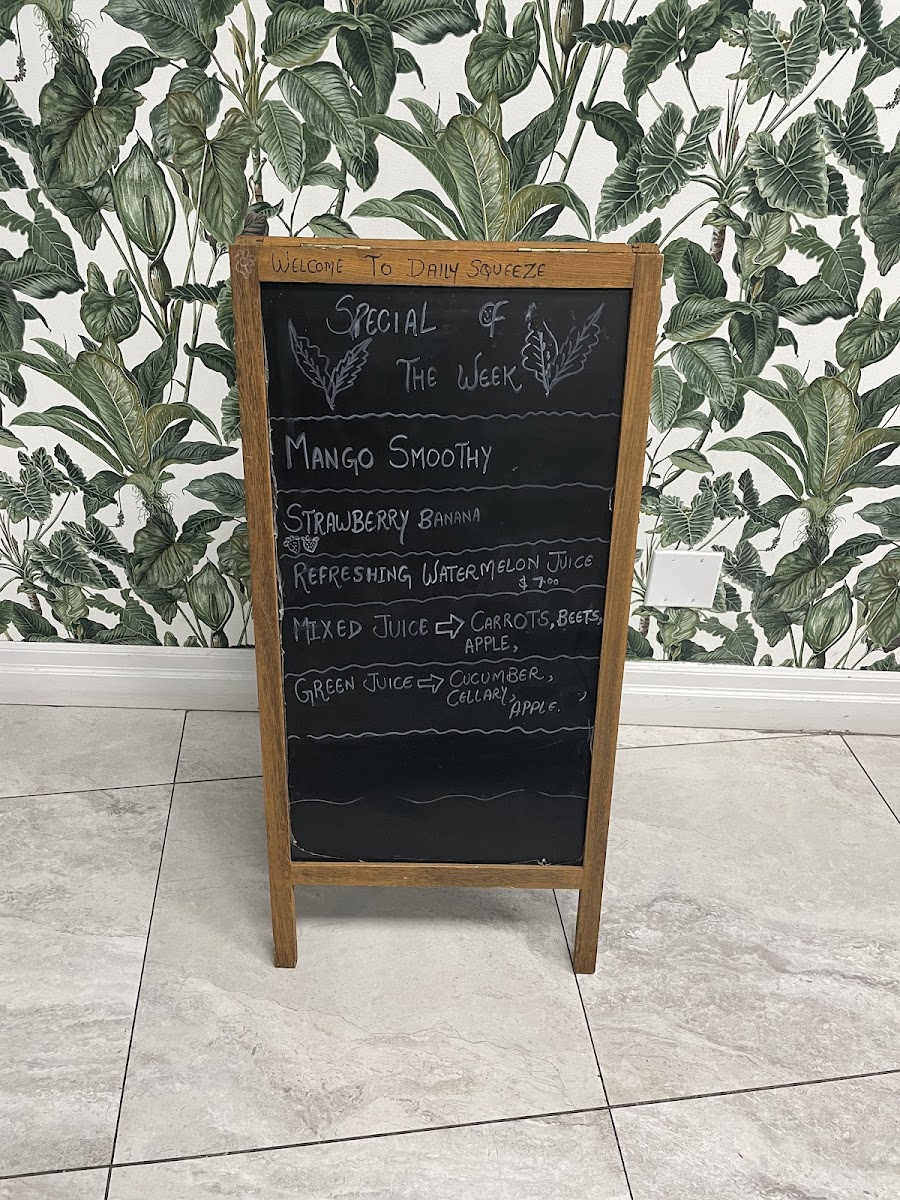 WELCOME TO DAILY SQUEEZE
SPECIAL OF
THE WEEK
MANGO SMOOTHY
STRAWBERRY BANANA
REFRESHING WATERMELON JUICE
$7.00
MIXED JUICE ⇨ CARROTS, BEETS,
APPLE,
GREEN JUICE ⇨ CUCUMBER,
CELLARY, ,
APPLE.